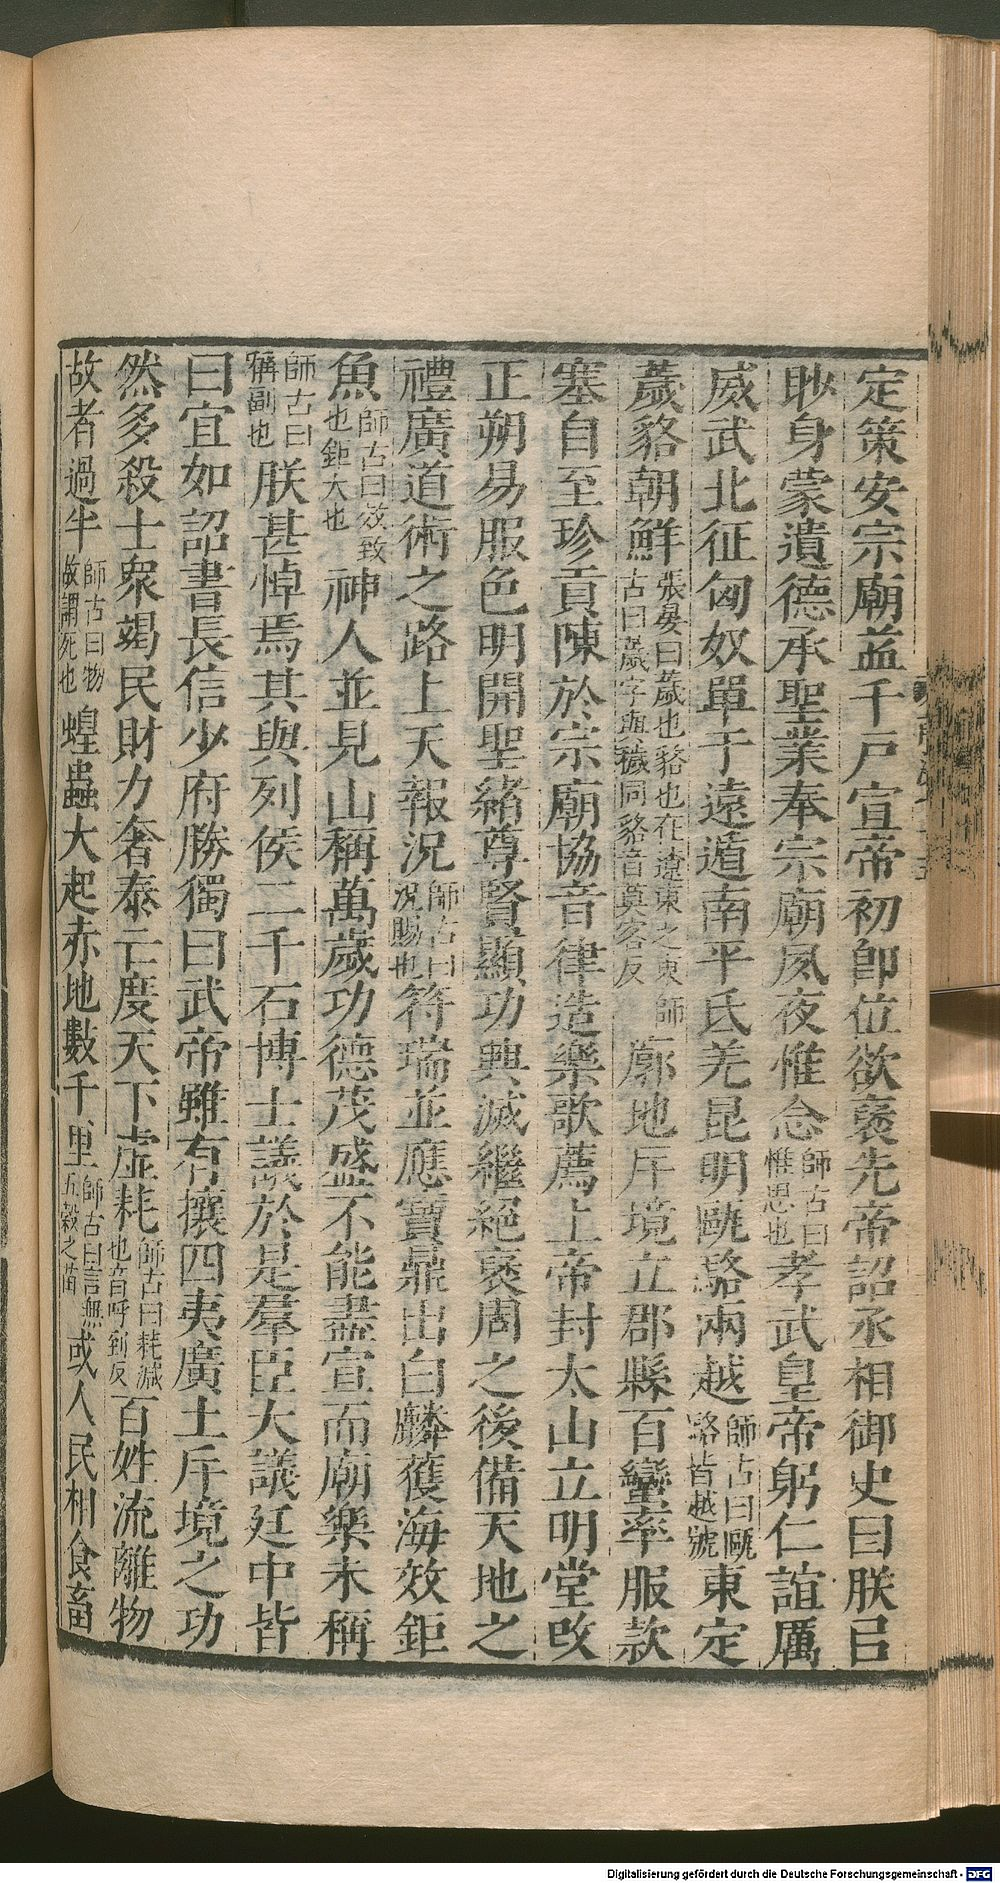 定策安宗廟益千戶宣帝初卽位欲襃先帝詔丞相御史曰朕㠯
眇身蒙遺德承聖業奉宗廟夙夜惟念師古曰惟思也孝武皇帝躬仁誼厲
威武北征匈奴單于遠遁南平氐羌昆明甌駱兩越師古曰甌駱皆越號東定
薉貉朝鮮張晏曰薉也貉也在遼東之東師古曰薉字與穢同貉音莫客反廓地斥境立郡縣百蠻率服款
塞自至珍貢陳於宗廟協音律造樂歌薦上帝封太山立明堂改
正朔易服色明開聖緒尊賢顯功興滅繼絕襃周之後備天地之
禮廣道術之路上天報況師古曰況賜也符瑞並應寶鼎出白麟獲海效鉅
魚師古曰效致也鉅大也神人並見山稱萬歲功德茂盛不能盡宣而廟樂未稱
師古曰稱副也朕甚悼焉其與列侯二千石博士議於是羣臣大議廷中皆
曰宜如詔書長信少府勝獨曰武帝雖有攘四夷廣土斥境之功
然多殺士衆竭民財力奢泰亡度天下虛耗師古曰耗減也音呼到反百姓流離物
故者過半師古曰物故謂死也蝗蟲大起赤地數千里師古曰言無五穀之苗或人民相食畜
Digitalisierung gefördert durch die Deutsche Forschungsgemeinschaft - DFG